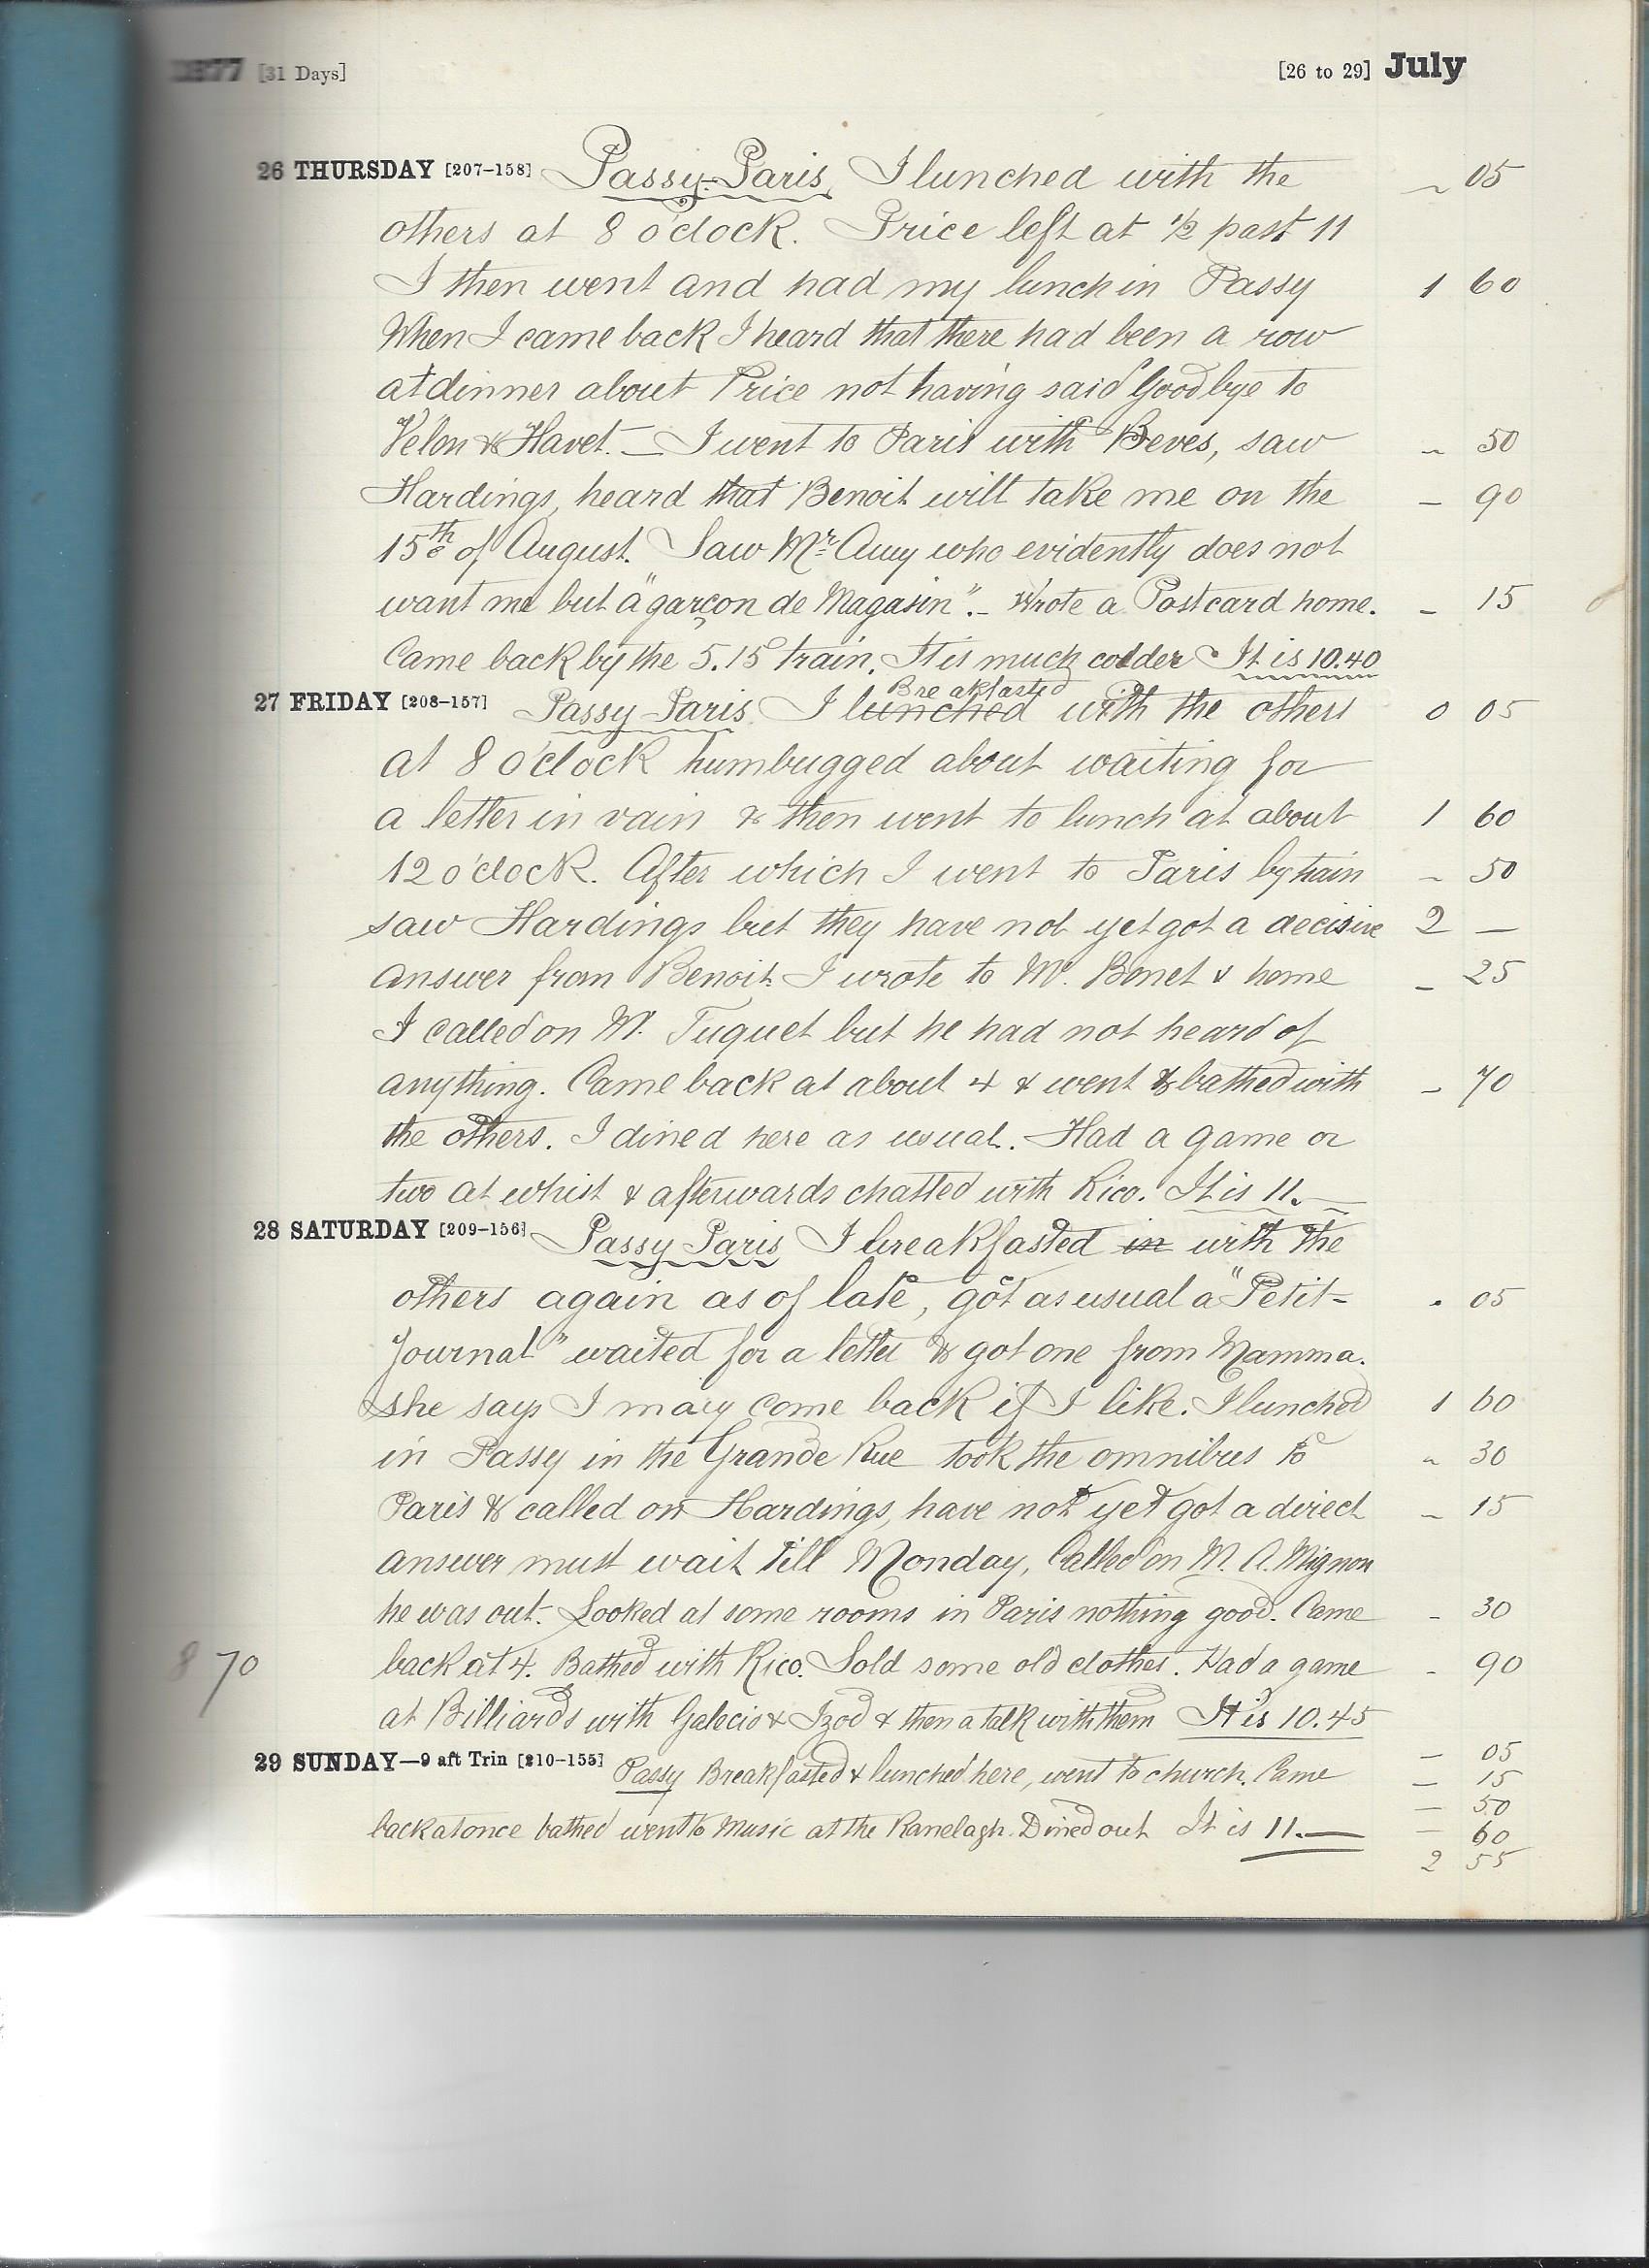 1877 [31 Days] [26 to 29] July
26 THURSDAY [207-158] Passy-Paris, I lunched with the ~ 05
others at 8 o'clock. Price left at ½ past 11
I then went and had my lunch in Passy 1 60
When I came back I heard that there had been a row
at dinner about Price not having said Goodbye to
Velon & Havet. — I went to Paris with Beves, saw ~ 50
Hardings, heard that Benoit will take me on the – 90
15th of August. Saw Mr. Amy who evidently does not
want me but a "garçon de Magasin". – Wrote a Postcard home. – 15
Came back by the 5.15 train. It is much colder It is 10.40
27 FRIDAY [208-157] Passy-Paris I lunched Breakfasted with the others 0 05
at 8 o'clock humbugged about waiting for
a letter in vain & then went to lunch at about 1 60
12 o'clock. After which I went to Paris by train ~ 50
saw Hardings but they have not yet got a decisive 2 —
answer from Benoit. I wrote to Mr. Bonet & home – 25
I called on M. Tuquet but he had not heard of
anything. Came back at about 4 & went & bathed with – 70
the others. I dined here as usual. Had a game or
two at whist & afterwards chatted with Rico. It is 11. —
28 SATURDAY [209-156] Passy Paris I breakfasted in with the
others again as of late, got as usual a "Petit= . 05
Journal" waited for a letter & got one from Mamma.
she says I may come back if I like. I lunched 1 60
in Passy in the Grande Rue took the omnibus to ~ 30
Paris & called on Hardings, have not yet got a direct ~ 15
answer must wait till Monday, Called on M. A. Mignon
he was out. Looked at some rooms in Paris nothing good. Came - 30
8 70 back at 4. Bathed with Rico. Sold some old clothes. Had a game - 90
at Billiards with Galecio & Izod & then a talk with them It is 10.45
29 SUNDAY—9 aft Trin [210-155] Passy Breakfasted & lunched here, went to church. Came — 05
— 15
— 50
back at once bathed went to Music at the Ranelagh. Dined out It is 11. — — 60
2 55